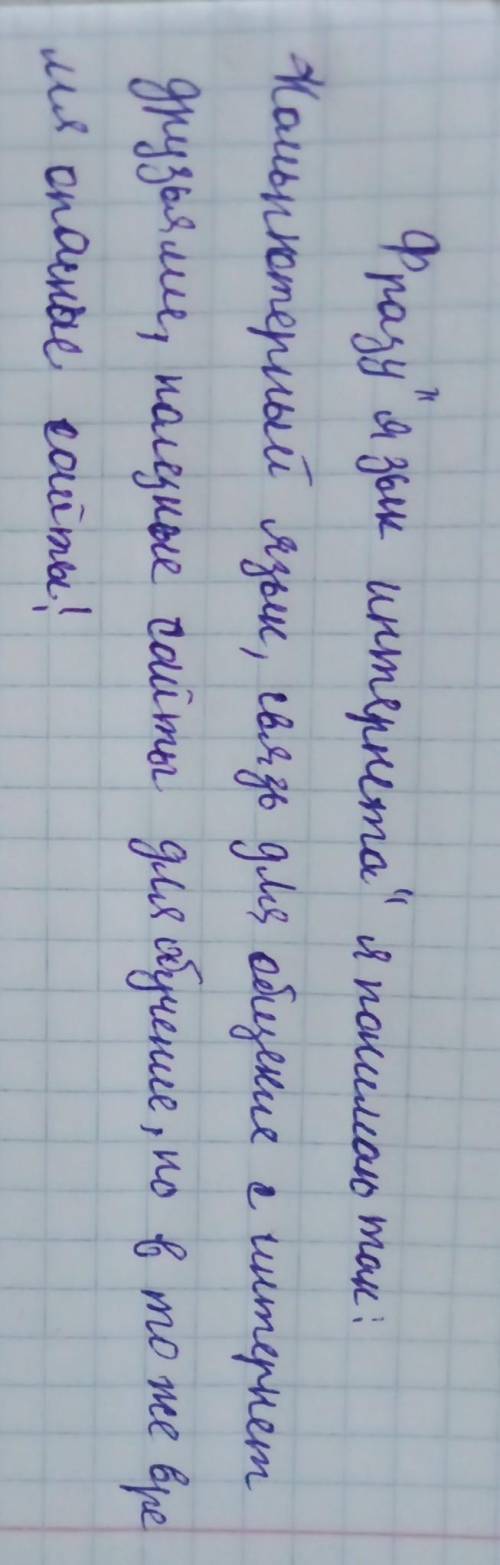 Фразу "язык интернета" я понимаю так:
Компьютерный язык, связь для общение с интернет
друзьями, полезные сайты для обучение, но в то же вре
мя опасные сайты!